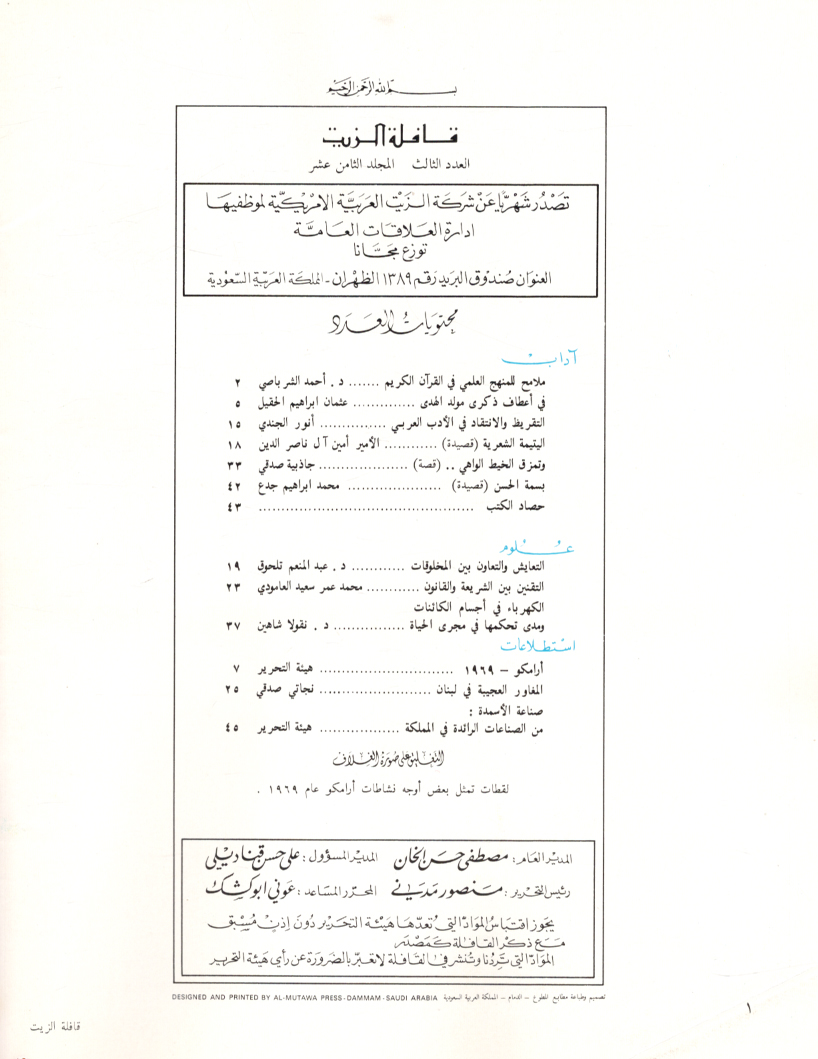 بسم الله الرحمن الرحيم
قافلة الزيت
العدد الثالث المجلد الثامن عشر
تصدر شهريًا عن شركة الزيت العربية الامريكية لموظفيها
ادارة العلاقات العامة
توزع مجانا
العنوان صندوق البريد رقم ١٣٨٩ الظهران - المملكة العربية السعودية
محتويات العدد
آداب
ملامح للمنهج العلمي في القرآن الكريم ....... د. أحمد الشرباصي ٢
في أعطاف ذكرى مولد الهدى .............. عثمان ابراهيم الحقيل ٥
التقريظ والانتقاد في الأدب العربي ............... أنور الجندي ١٥
اليتيمة الشعرية (قصيدة) ............ الأمير أمين آل ناصر الدين ١٨
وتمزق الخيط الواهي .. (قصة) .................... جاذبية صدقي ٣٣
بسمة الحسن (قصيدة) ..................... محمد ابراهيم جدع ٤٢
حصاد الكتب ................................................ ٤٣
علوم
التعايش والتعاون بين المخلوقات ............ د. عبد المنعم تلحوق ١٩
التقنين بين الشريعة والقانون ............ محمد عمر سعيد العامودي ٢٣
الكهرباء في أجسام الكائنات
ومدى تحكمها في مجرى الحياة ................ د. نقولا شاهين ٣٧
استطلاعات
أرامكو – ١٩٦٩ .............................. هيئة التحرير ٧
المغاور العجيبة في لبنان ......................... نجاتي صدقي ٢٥
صناعة الأسمدة :
من الصناعات الرائدة في المملكة .................. هيئة التحرير ٤٥
التعليق على صورة الغلاف
لقطات تمثل بعض أوجه نشاطات أرامكو عام ١٩٦٩ .
المدير العام: مصطفى حسن الخان المدير المسؤول: علي حسن قناديلي
رئيس التحرير: منصور مدني المحرر المساعد: عوني ابوكشك
يجوز اقتباس المواد التي تعدها هيئة التحرير دون إذن مسبق
مع ذكر القافلة كمصدر
المواد التي تردنا وتنشر في القافلة لا تعبر بالضرورة عن رأي هيئة التحرير
DESIGNED AND PRINTED BY AL-MUTAWA PRESS-DAMMAM-SAUDI ARABIA تصميم وطباعة مطابع المطوع – الدمام – المملكة العربية السعودية
١
قافلة الزيت